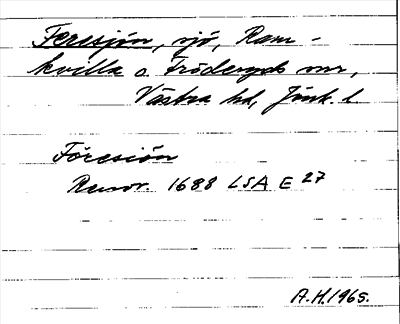 Feresjön, sjö, Ram-
kvilla o. Fröderyds snr,
Västra hd, Jönk. l.
Föresiön
Rannr. 1688 LSA E 27
A.H. 1965.